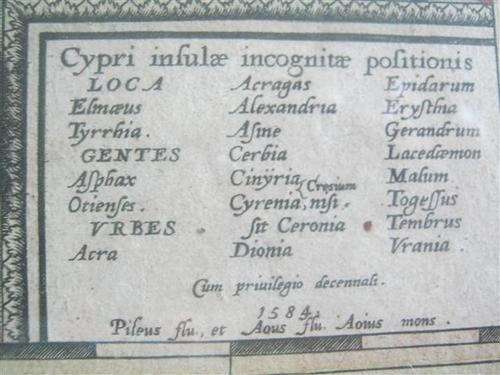 Cypri insulæ incognitæ positionis
LOCA
Elmæus
Tyrrhia.
GENTES
Aſphax
Otienſes.
VRBES
Acra
Acragas
Alexandria
Aſine
Cerbia
Cinÿria,
Creſium
Cyrenia, niſi
ſit Ceronia
Dionia
Epidarum
Eryſthia
Gerandrum
Lacedæmon
Malum
Togeſſus
Tembrus
Vrania.
Cum priuilegio decennali.
1584.
Pileus flu., et Aous flu. Aoius mons.